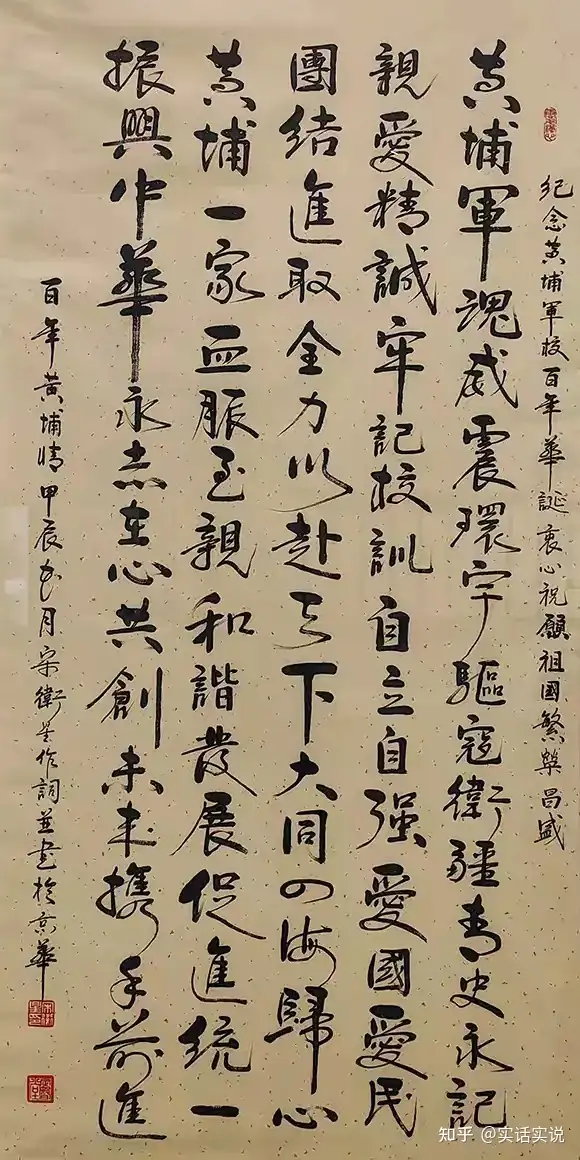 紀念黄埔軍校百年華誕衷心祝願祖國繁榮昌盛
黄埔軍魂威震環宇驅寇衛疆青史永記
親愛精誠牢記校訓自立自强愛國愛民
團結進取全力以赴天下大同四海歸心
黄埔一家血脈至親和諧發展促進統一
振興中華永志在心共創未来携手前進
百年黄埔情甲辰月宋衛星作詞並書於京華
知乎 @实话实说